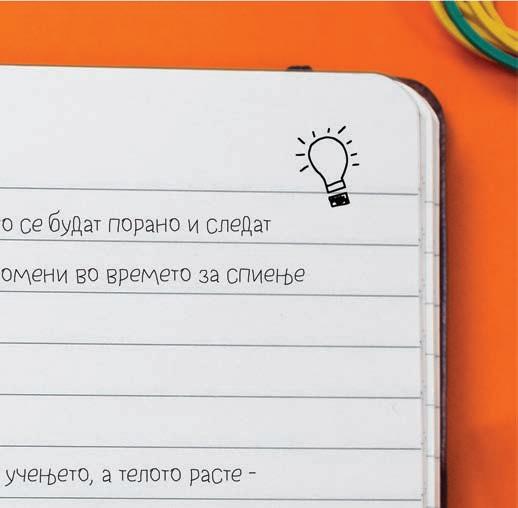 о се будат порано и следат
омени во времето за спиење
учењето, а телото расте -